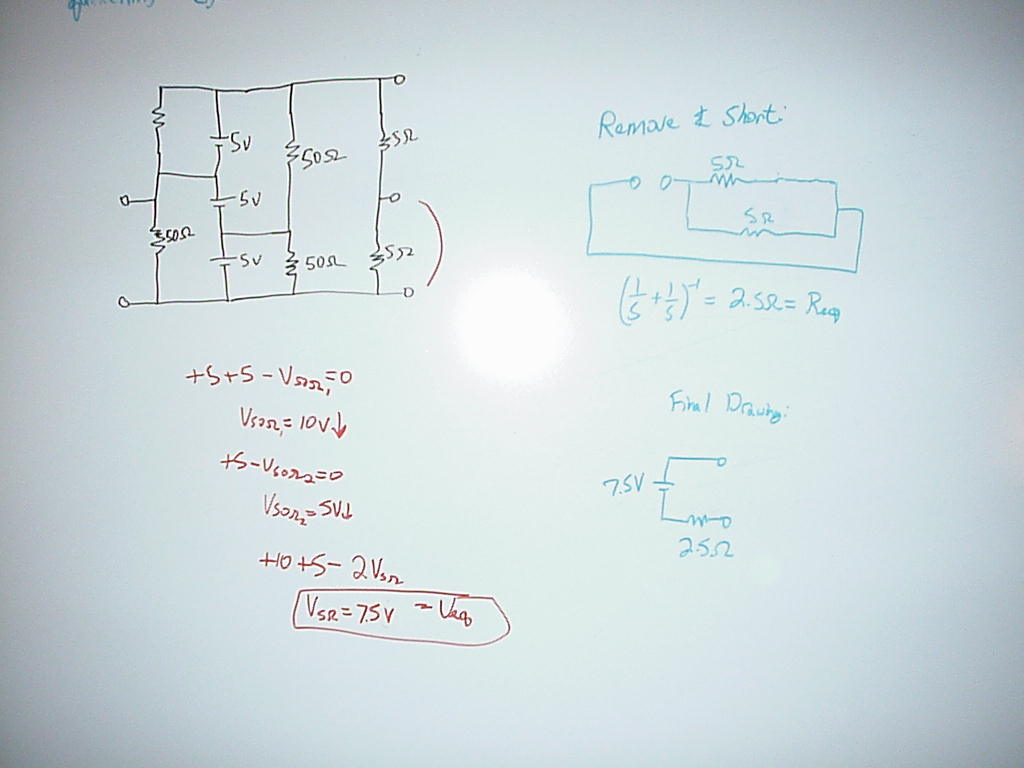 5V
50Ω
5Ω
5V
50Ω
5V
50Ω
5Ω
+5+5-V50Ω₁=0
V50Ω₁=10V↓
+5-V50Ω₂=0
V50Ω₂=5V↓
+10+5-2V5Ω
V5Ω=7.5V = Veq
Remove & Short:
5Ω
5Ω
(1/5+1/5)⁻¹=2.5Ω=Req
Final Drawing:
7.5V
2.5Ω